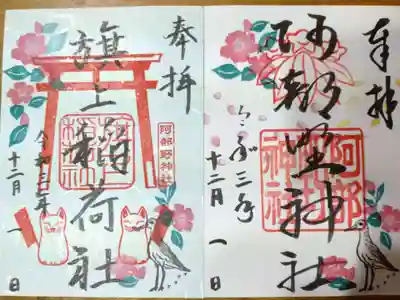 奉拝
阿部野神社
阿部野神社
令和三年
十二月一日
奉拝
阿部野神社
旗上稲荷社
令和三年
十二月一日